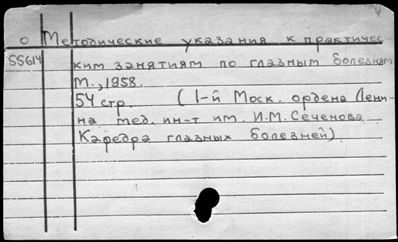 о Методические указания к практичес
55614 ким занятиям по глазным болезням
М., 1958.
54 стр. (1-й Моск. ордена Лени-
на мед. ин-т им. И.М. Сеченова
Кафедра глазных болезней)